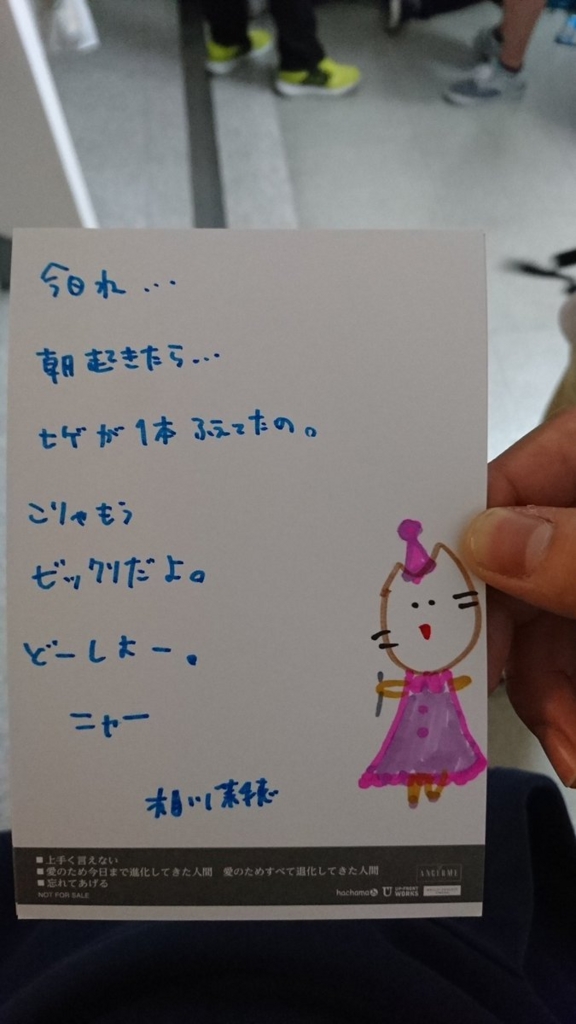 今日ね…
朝起きたら…
ヒゲが1本ふえてたの。
こりゃもう
ビックリだよ。
どーしよー。
ニャー
相川茉穂
■上手く言えない
■愛のため今日まで進化してきた人間 愛のためすべて退化してきた人間
■忘れてあげる
NOT FOR SALE
hachama
UP-FRONT WORKS
ANGERME